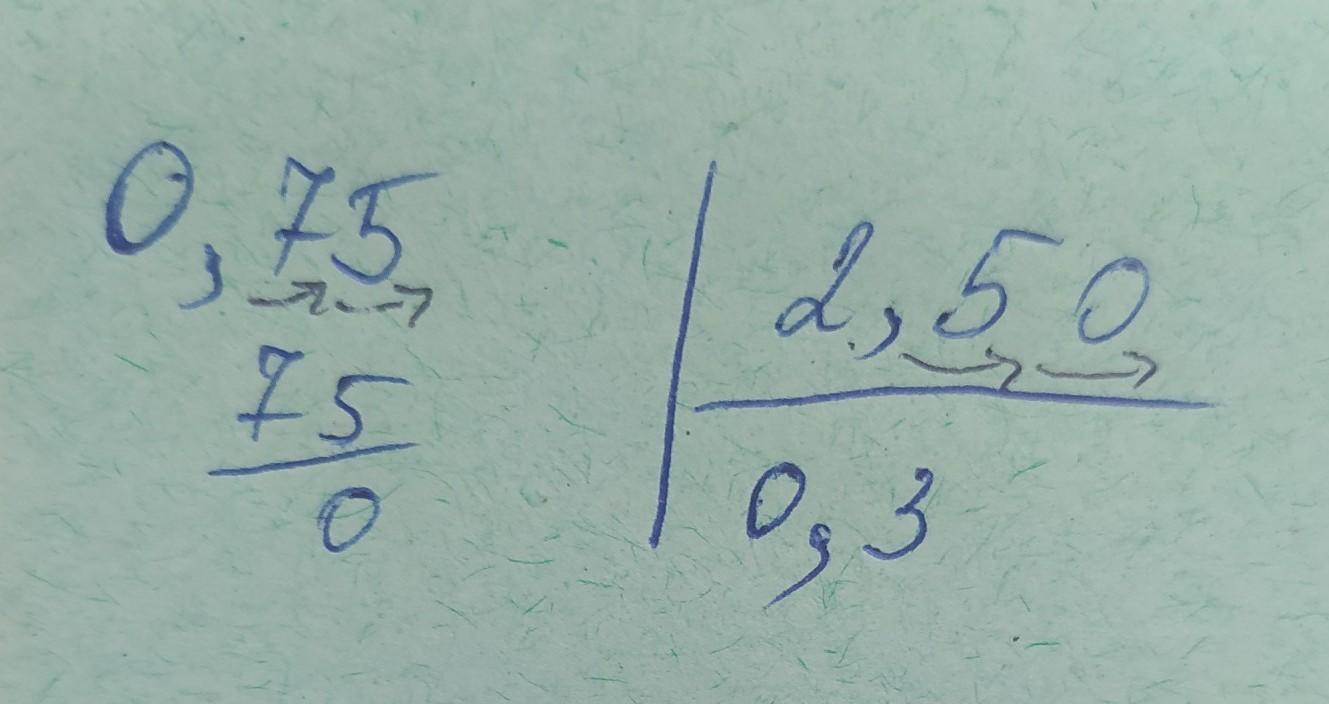 0,75 | 2,50
75 | 0,3
0